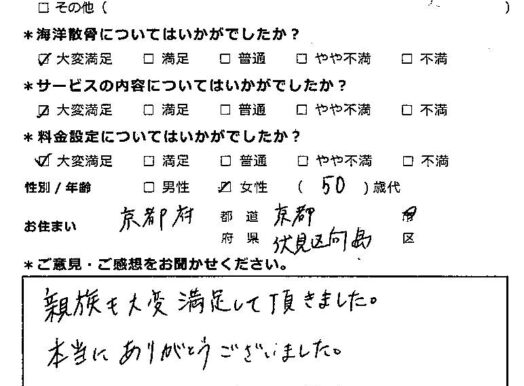 □ その他（　）
＊海洋散骨についてはいかがでしたか？
☑ 大変満足 □ 満足 □ 普通 □ やや不満 □ 不満
＊サービスの内容についてはいかがでしたか？
☑ 大変満足 □ 満足 □ 普通 □ やや不満 □ 不満
＊料金設定についてはいかがでしたか？
☑ 大変満足 □ 満足 □ 普通 □ やや不満 □ 不満
性別 / 年齢 □ 男性 ☑ 女性 （ 50 ）歳代
お住まい 京都府 都 道 府 県 京都 市 伏見区向島 区
＊ご意見・ご感想をお聞かせください。
親族も大変満足して頂きました。
本当にありがとうございました。